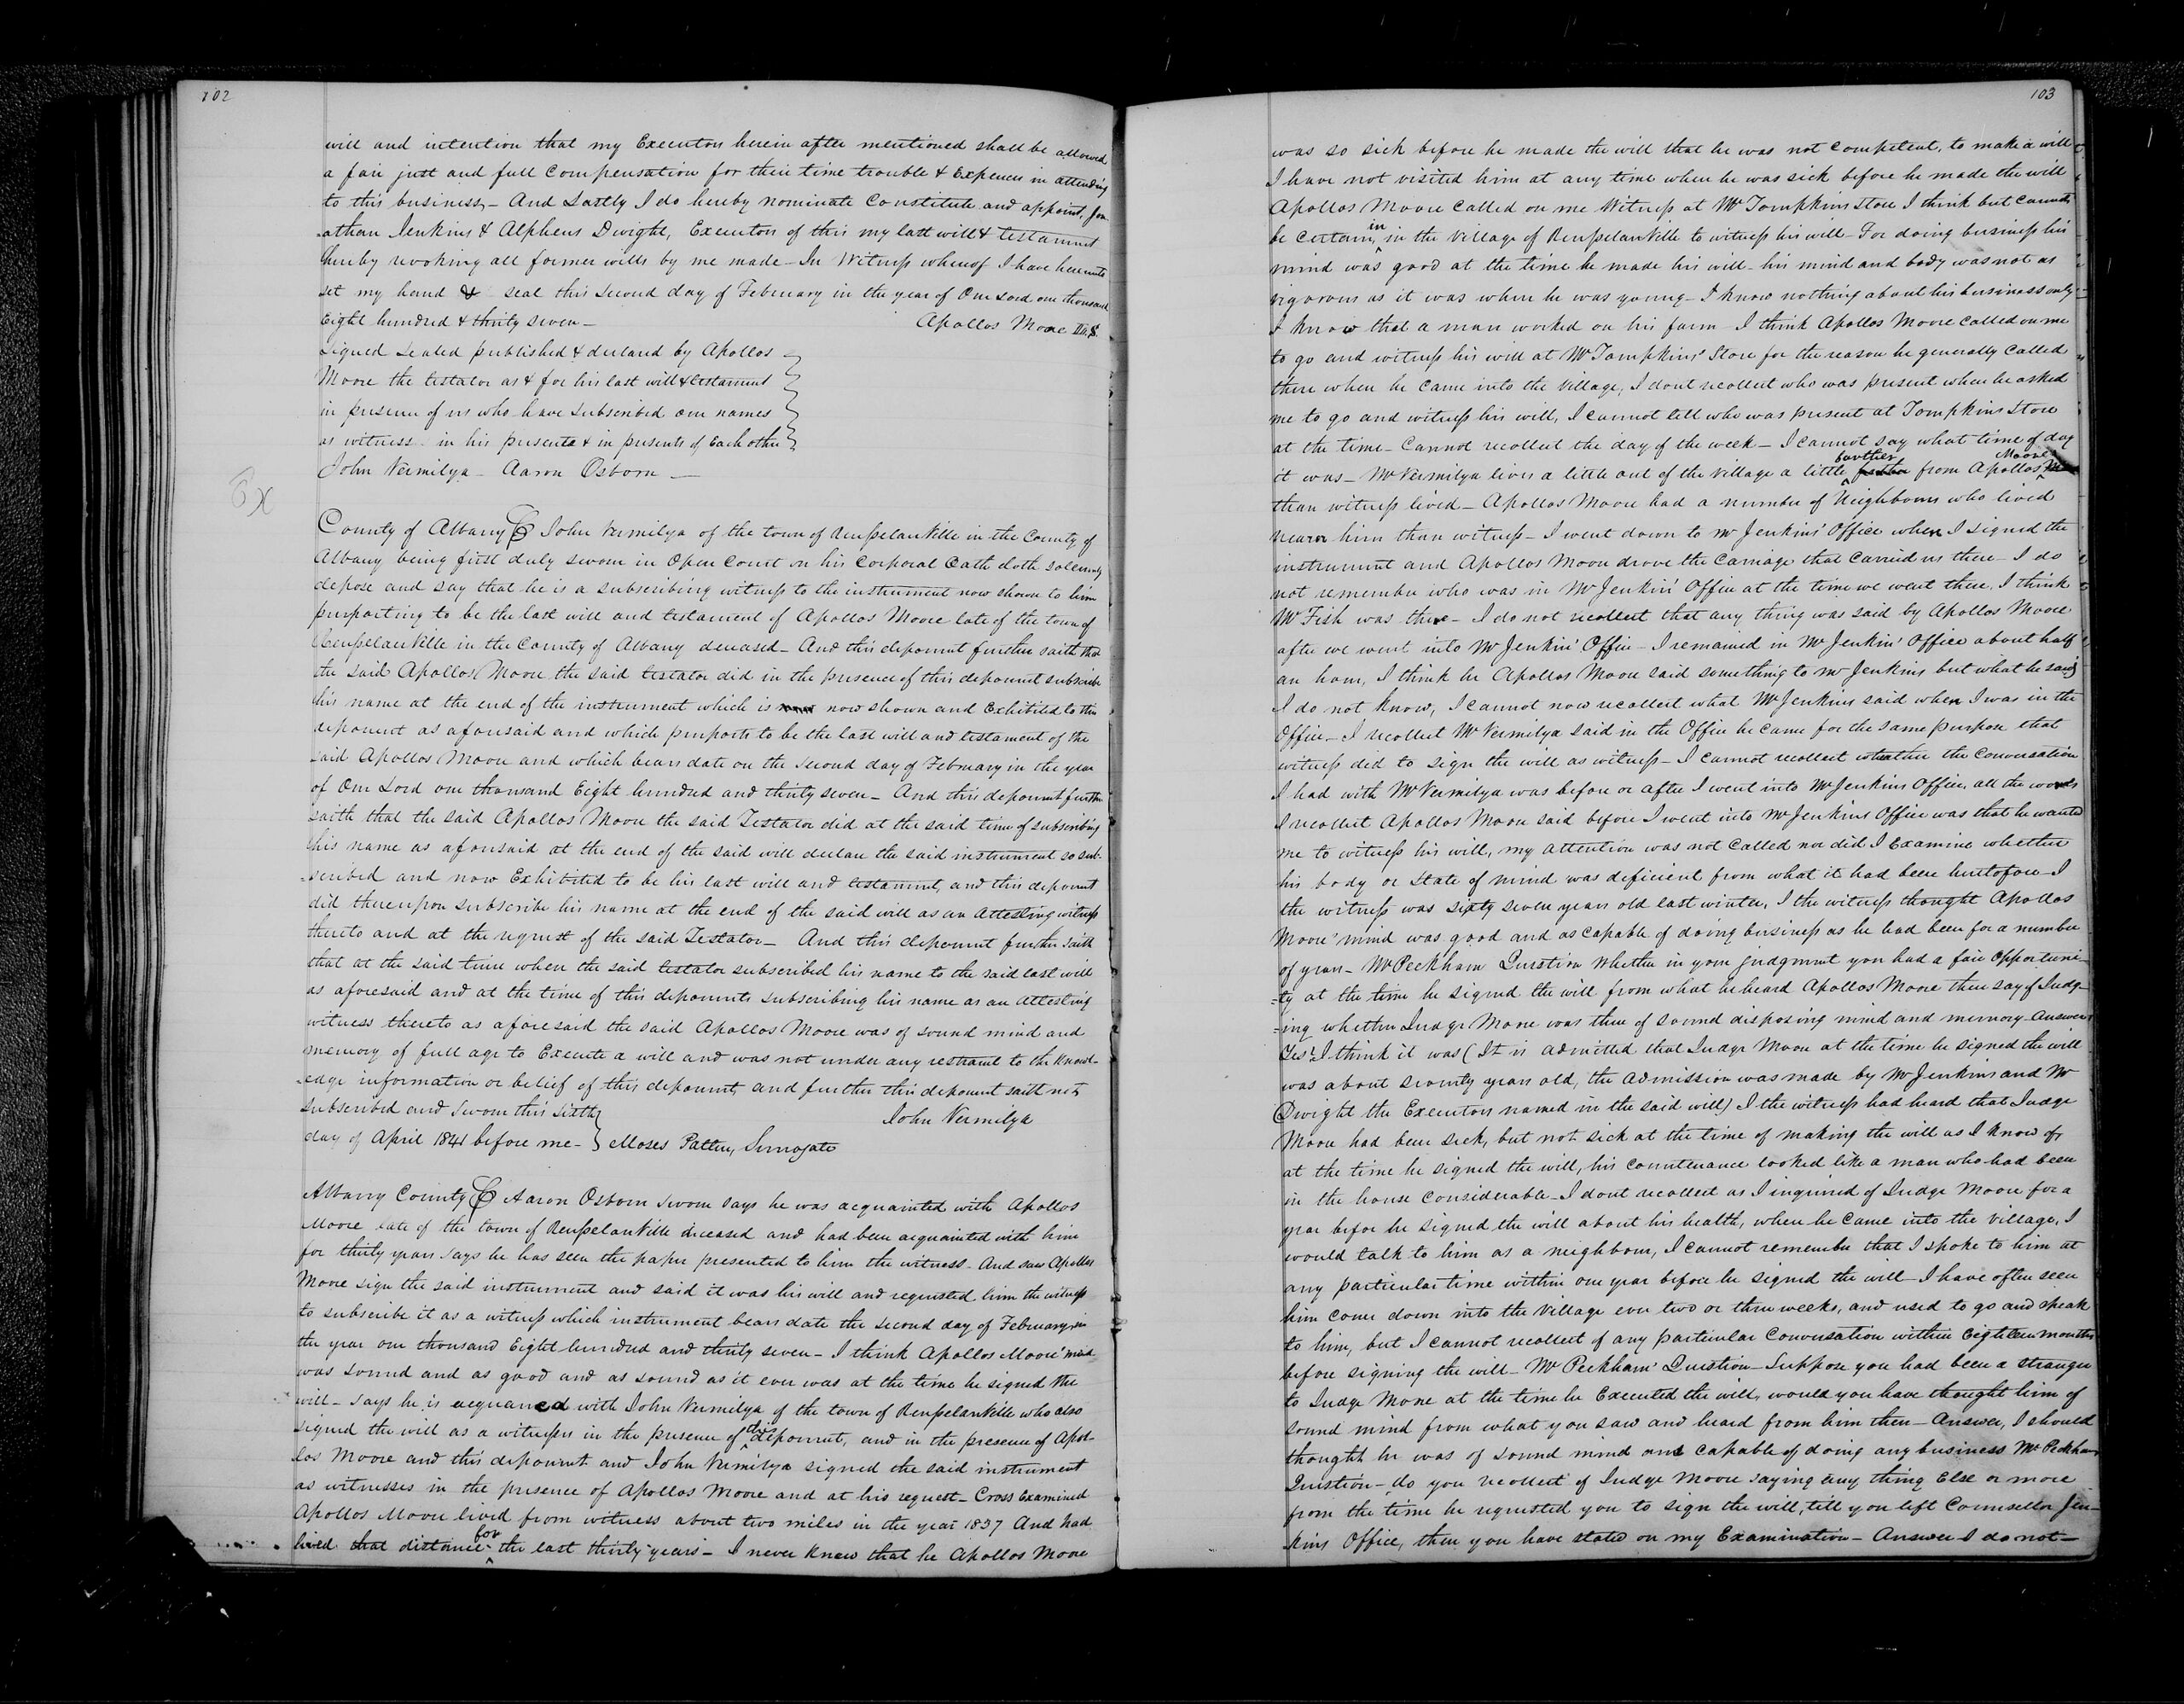 102
will and intention that my Executors herein after mentioned shall be allowed
a fair just and full Compensation for their time trouble & Expences in attending
to this business - And Lastly I do hereby nominate Constitute and appoint, Jon
-athan Jenkins & Alpheus Dwight, Executors of this my last will & testament
hereby revoking all former wills by me made - In Witness whereof I have hereunto
set my hand & seal this second day of February in the year of Our Lord one thousand
Eight hundred & thirty seven -
Apollos Moore L.S.
Signed Sealed published & declared by Apollos
Moore the testator as & for his last will & testament
in presence of us who have subscribed our names
as witness in his presents & in presents of Each other
John Vermilya - Aaron Osborn -
Ex
County of Albany SS John Vermilya of the town of Rensselaerville in the County of
Albany being first duly sworn in Open Court on his Corporal Oath doth solemnly
depose and say that he is a subscribing witness to the instrument now shown to him
purporting to be the last will and testament of Apollos Moore late of the town of
Rensselaerville in the County of Albany deceased - And this deponent further saith that
the said Apollos Moore the said testator did in the presence of this deponent subscribe
his name at the end of the instrument which is now shown and Exhibited to this
deponent as aforesaid and which purports to be the last will and testament of the
said Apollos Moore and which bears date on the second day of February in the year
of Our Lord one thousand Eight hundred and thirty seven - And this deponent further
saith that the said Apollos Moore the said Testator did at the said time of subscribing
his name as aforesaid at the end of the said will declare the said instrument so sub-
-scribed and now Exhibited to be his last will and testament, and this deponent
did thereupon subscribe his name at the end of the said will as an attesting witness
thereto and at the request of the said Testator - And this deponent further saith
that at the said time when the said testator subscribed his name to the said last will
as aforesaid and at the time of this deponents subscribing his name as an attesting
witness thereto as aforesaid the said Apollos Moore was of sound mind and
memory of full age to Execute a will and was not under any restraint to the knowl-
-edge information or belief of this deponent, and further this deponent saith not
Subscribed and Sworn this sixth
John Vermilya
day of April 1841 before me - Moses Patten, Surrogate
Albany County SS Aaron Osborn sworn says he was acquainted with Apollos
Moore late of the town of Rensselaerville deceased and had been acquainted with him
for thirty years says he has seen the paper presented to him the witness - And saw Apollos
Moore sign the said instrument and said it was his will and requested him the witness
to subscribe it as a witness which instrument bears date the second day of February in
the year one thousand Eight hundred and thirty seven - I think Apollos Moore' mind
was sound and as good and as sound as it ever was at the time he signed the
will - says he is acquanced with John Vermilya of the town of Rensselaerville who also
signed the will as a witness in the presence of this deponent, and in the presence of Apol-
los Moore and this deponent and John Vermilya signed the said instrument
as witnesses in the presence of Apollos Moore and at his request - Cross Examined
Apollos Moore lived from witness about two miles in the year 1837 And had
lived that distance for the last thirty years - I never knew that he Apollos Moore
103
was so sick before he made the will that he was not competent, to make a will
I have not visited him at any time when he was sick before he made the will
Apollos Moore called on me Witness at Mr Tompkins Store I think but cannot
be certain, in the Village of Rensselaerville to witness his will - For doing business his
mind was in good at the time he made his will - his mind and body was not as
vigorous as it was when he was young - I know nothing about his business only
I know that a man worked on his farm I think Apollos Moore called on me
to go and witness his will at Mr Tompkins' Store for the reason he generally called
there when he came into the Village, I dont recollect who was present when he asked
me to go and witness his will, I cannot tell who was present at Tompkins Store
at the time - Cannot recollect the day of the week - I cannot say what time of day
it was - Mr Vermilya lives a little out of the village a little farther from Apollos Moore
than witness lived - Apollos Moore had a number of Neighbours who lived
nearer him than witness - I went down to Mr Jenkins' Office when I signed the
instrument and Apollos Moore drove the Carriage that Carried us there - I do
not remember who was in Mr Jenkins' Office at the time we went there, I think
Mr Fish was there - I do not recollect that any thing was said by Apollos Moore
after we went into Mr Jenkin' Office - I remained in Mr Jenkin' Office about half
an hour, I think he Apollos Moore said something to Mr Jenkins but what he said
I do not know, I cannot now recollect what Mr Jenkins said when I was in the
Office - I recollect Mr Vermilya said in the Office he came for the same purpose that
witness did to sign the will as witness - I cannot recollect wheather the Conversation
I had with Mr Vermilya was before or after I went into Mr Jenkins Office, all the words
I recollect Apollos Moore said before I went into Mr Jenkins Office was that he wanted
me to witness his will, my attention was not called nor did I Examine whether
his body or state of mind was deficient from what it had been heretofore - I
the witness was sixty seven years old last winter, I the witness thought Apollos
Moore' mind was good and as capable of doing business as he had been for a number
of years - Mr Peckham Question Whether in your judgment you had a fair Opportuni-
-ty at the time he signed the will from what he heard Apollos Moore then say of Judg-
-ing whether Judge Moore was then of sound disposing mind and memory - Answer
Yes I think it was (It is admitted that Judge Moore at the time he signed the will
was about seventy years old, the admission was made by Mr Jenkins and Mr
Dwight the Executors named in the said will) I the witness had heard that Judge
Moore had been sick, but not sick at the time of making the will as I know of
at the time he signed the will, his countenance looked like a man who had been
in the house considerable - I dont recollect as I inquired of Judge Moore for a
year before he signed the will about his health, when he came into the Village, I
would talk to him as a neighbour, I cannot remember that I spoke to him at
any particular time within one year before he signed the will - I have often seen
him come down into the Village ever two or three weeks, and used to go and speak
to him, but I cannot recollect of any particular Conversation within Eighteen months
before signing the will - Mr Peckham' Question - Suppose you had been a stranger
to Judge Moore at the time he Executed the will, would you have thought him of
sound mind from what you saw and heard from him then - Answer, I should
thought he was of sound mind and capable of doing any business Mr Peckham
Question - do you recollect of Judge Moore saying any thing Else or more
from the time he requested you to sign the will, till you left Counsellor Jen-
kins Office, then you have stated on my Examination - Answer I do not -